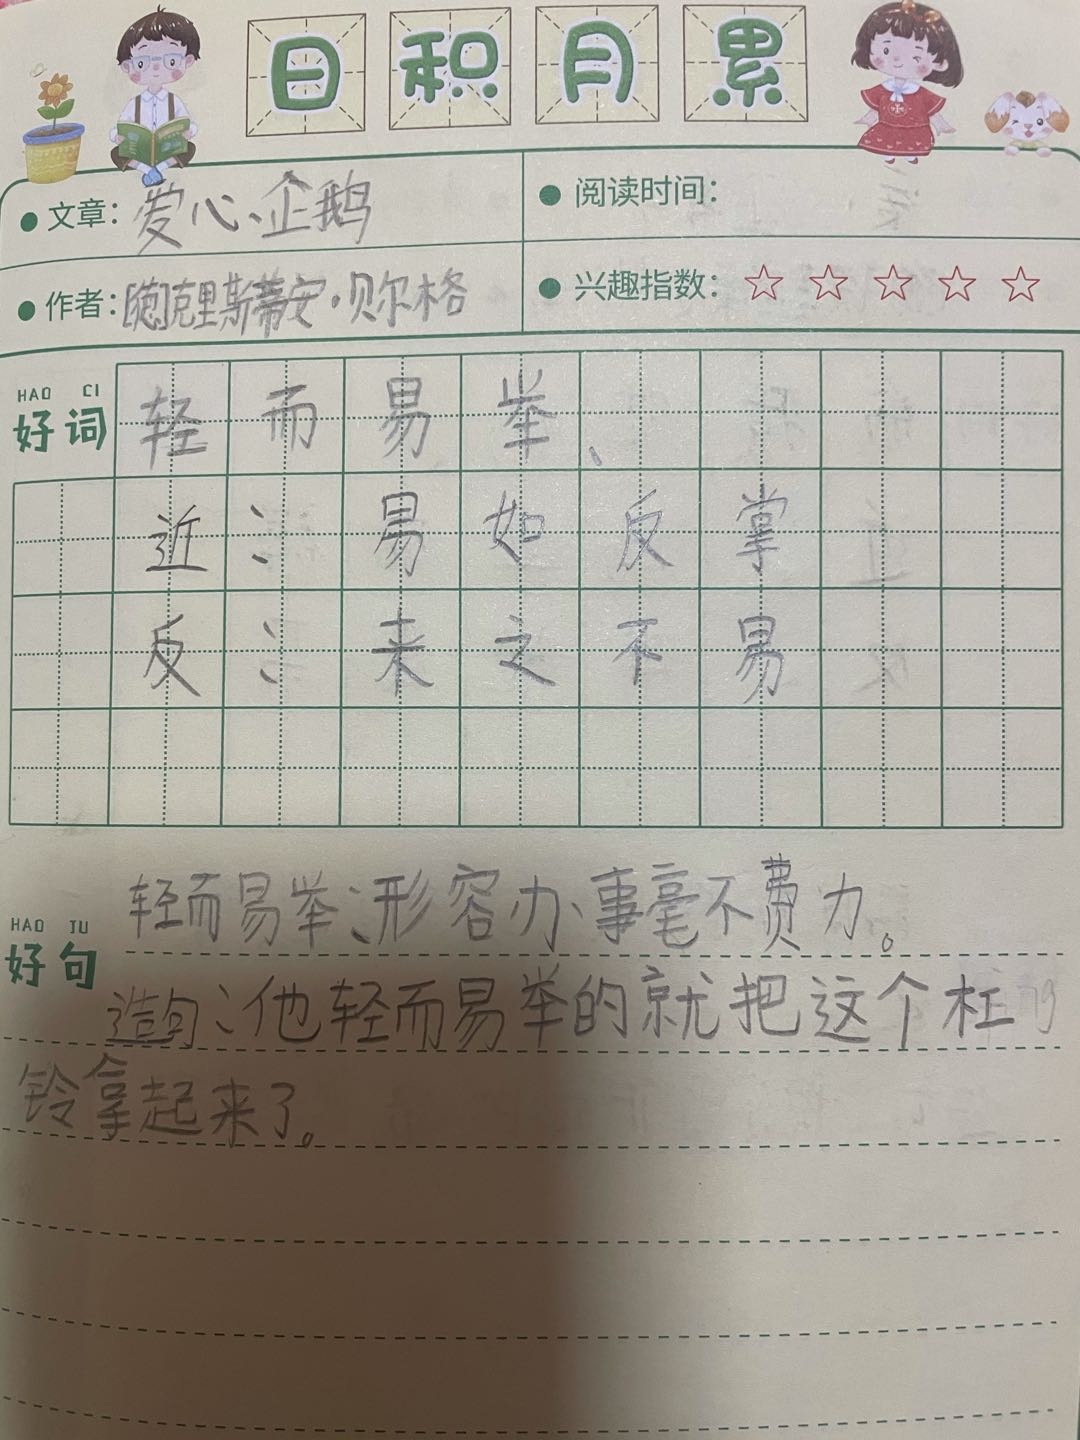 日积月累
文章：爱心企鹅
阅读时间：
作者：[德]克里斯蒂安·贝尔格
兴趣指数：☆☆☆☆☆
HAO CI
好词
轻而易举、
近：易如反掌
反：来之不易
轻而易举：形容办事毫不费力。
HAO JU
好句
造句：他轻而易举的就把这个杠
铃拿起来了。